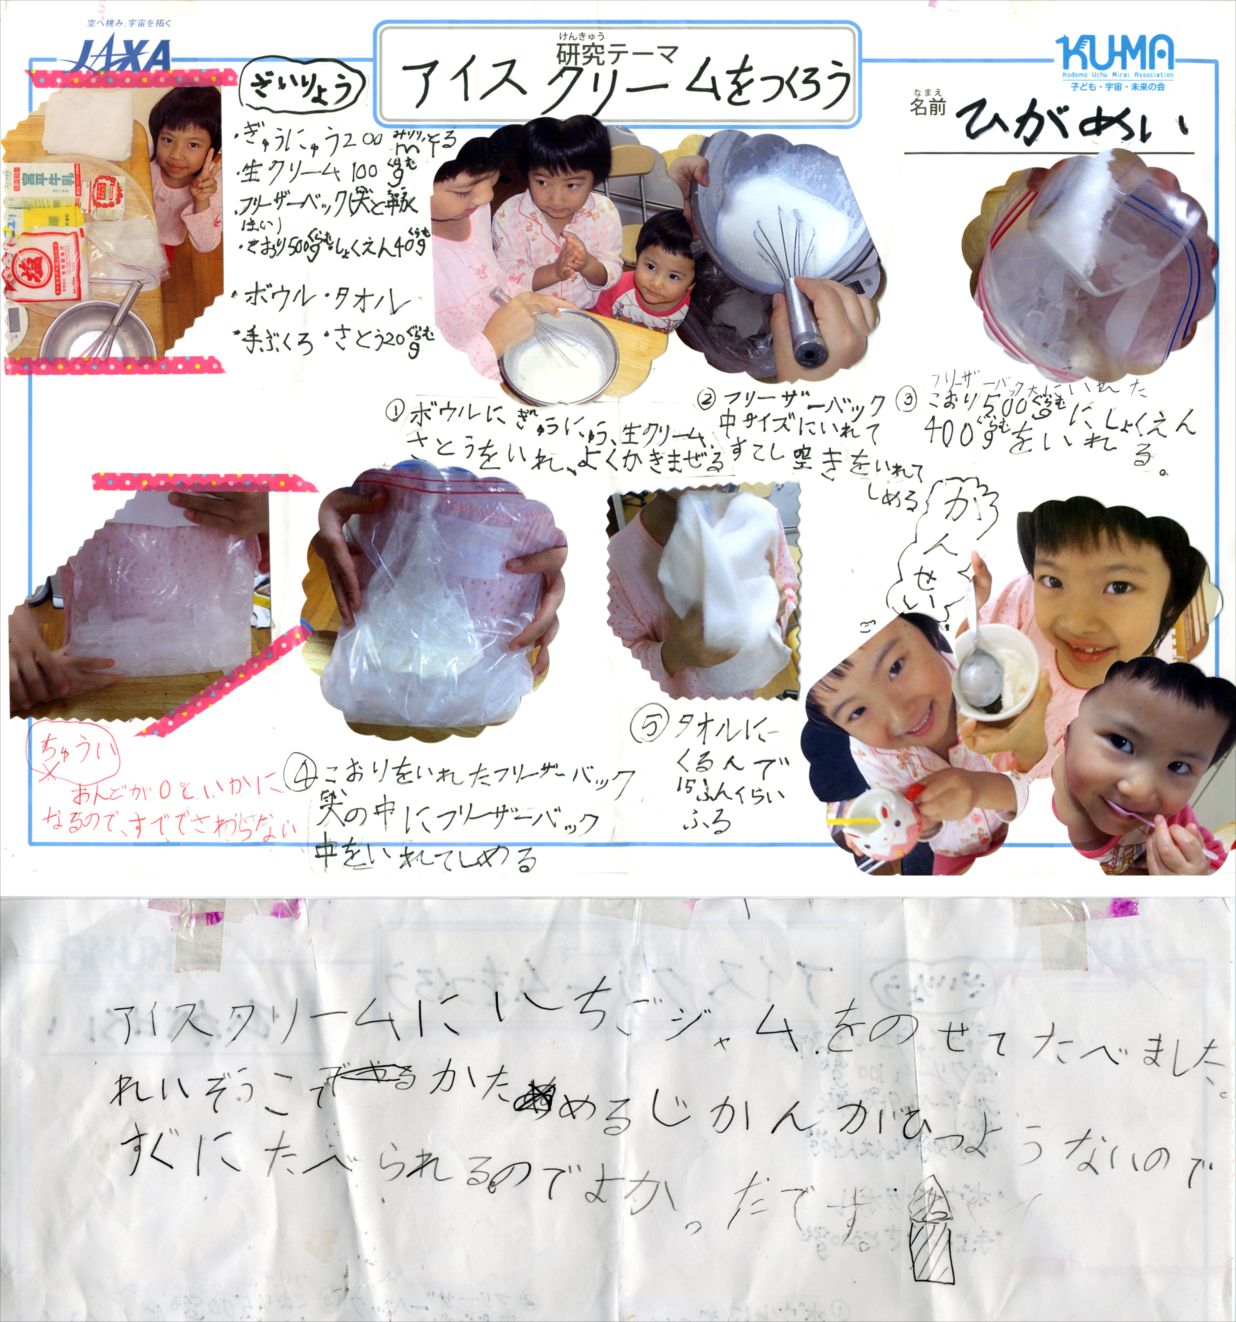 空へ挑み、宇宙を拓く
JAXA
けんきゅう
研究テーマ
アイスクリームをつくろう
KU-MA
Kodomo Uchu Mirai Association
子ども・宇宙・未来の会
なまえ
名前 ひがめい
ざいりょう
・ぎゅうにゅう200ml
・生クリーム100g
・フリーザーバック(大と中
・こおり500g・しょくえん40g
・ボウル・タオル
・手ぶくろ・さとう20g
①ボウルにぎゅうにゅう、生クリーム、
さとうをいれ、よくかきまぜる
②フリーザーバック
中サイズにいれて
すこし空きをいれて
しめる
③フリーザーバック大にいれた
こおり500gにしょくえん
400gをいれる。
ちゅうい
おんどが0どいかに
なるので、すででさわらない
④こおりをいれたフリーザーバック
大の中にフリーザーバック
中をいれてしめる
⑤タオルに
くるんで
15ふんくらい
ふる
かんせい
アイスクリームにいちごジャムをのせてたべました。
れいぞうこでかためるじかんがひつようないので
すぐにたべられるのでよかったです。